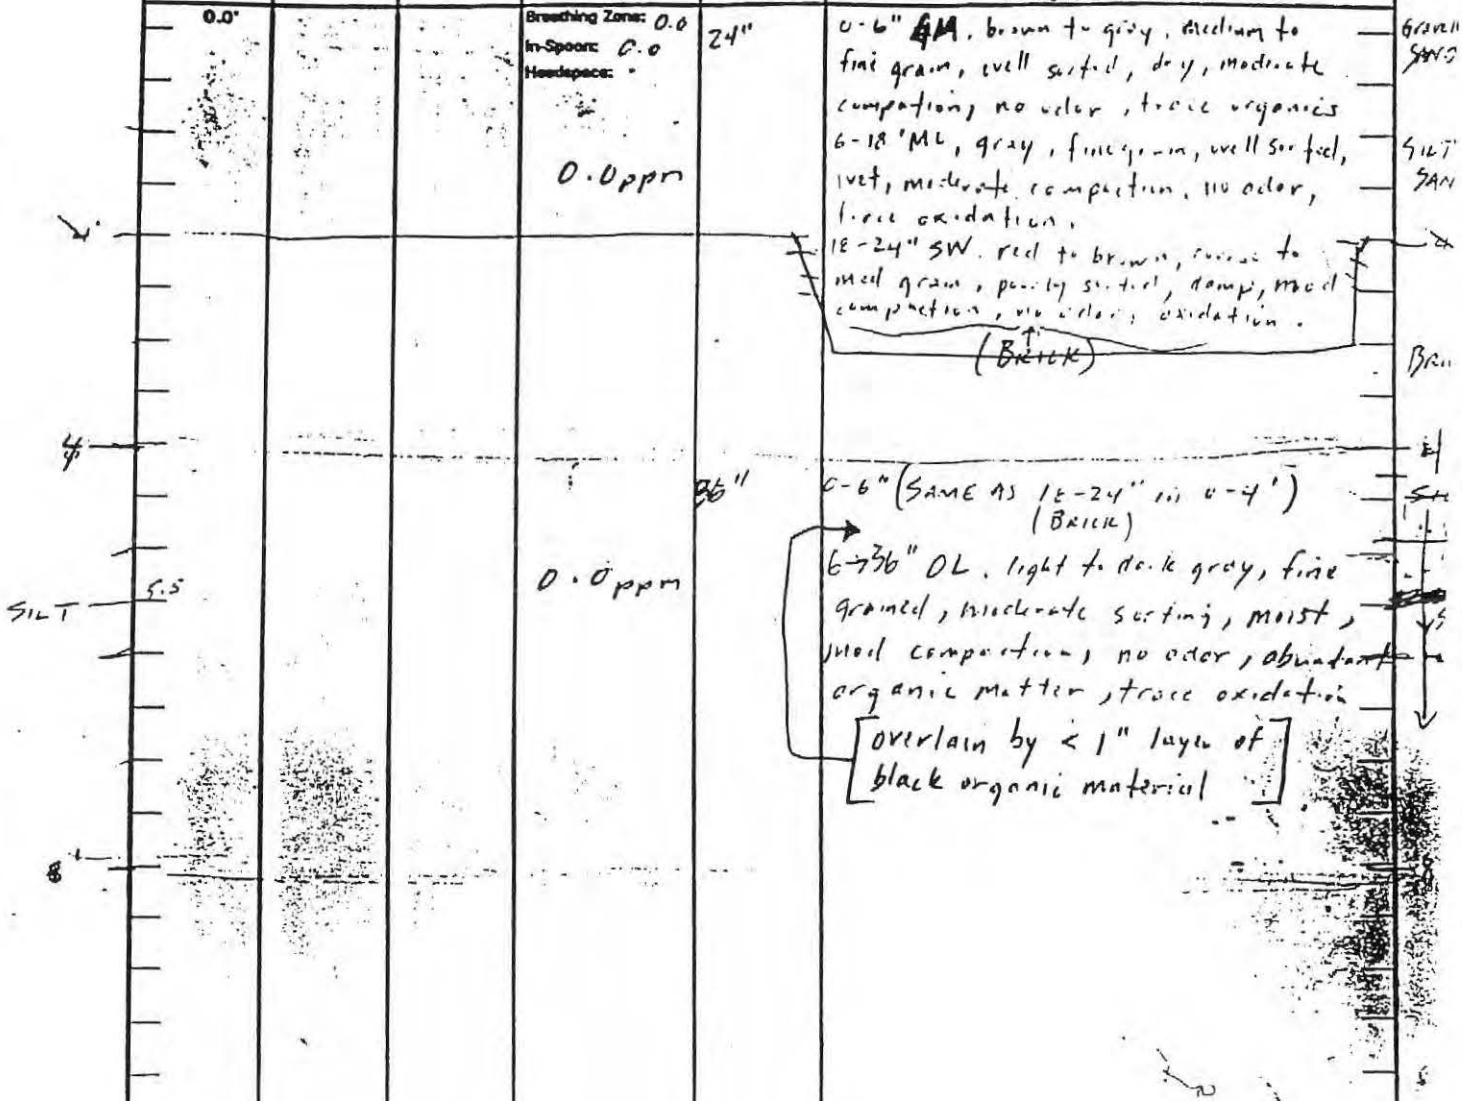 0.0'
Breathing Zone: 0.0
In-Spoon: 0.0
Headspace:
24"
0.0ppm
0-6" GM, brown to gray, medium to
fine grain, well sorted, dry, moderate
compation, no odor, trace organics
6-18" ML, gray, fine grain, well sorted,
wet, moderate compaction, no odor,
trace oxidation.
18-24" SW. red to brown, coarse to
med grain, poorly sorted, damp, mod
compaction, no odor, oxidation.
(BRICK)
SAN
4
36"
0.0ppm
0-6" (SAME AS 18-24" in 0-4')
(BRICK)
6→36" OL, light to dark gray, fine
grained, moderate sorting, moist,
mod compaction, no odor, abundant
organic matter, trace oxidation
[overlain by < 1" layer of
black organic material]
SILT
5.5
8